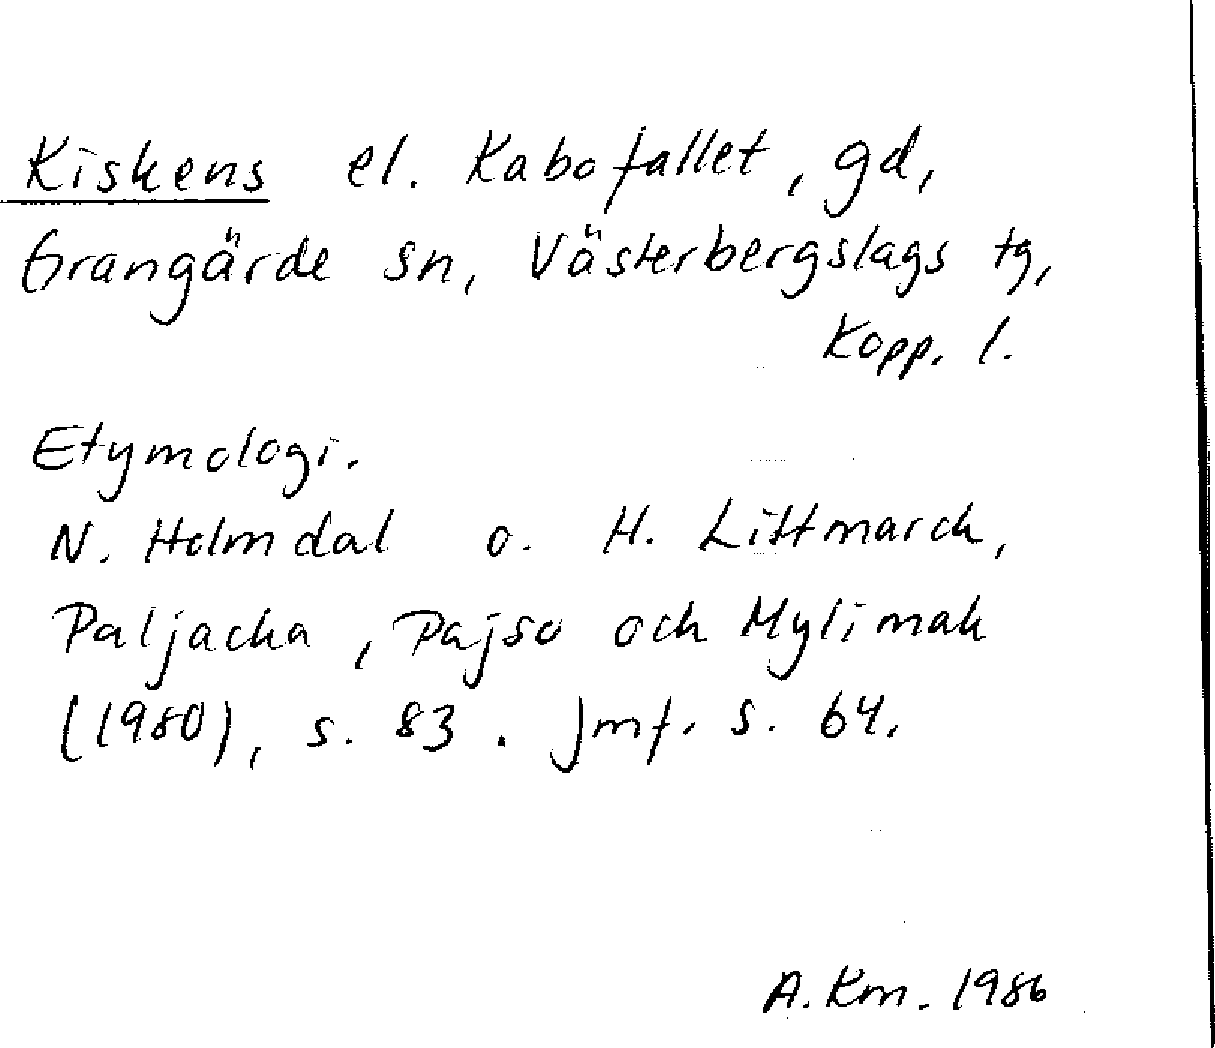 Kiskens el. Kabofallet, gd,
Grangärde sn, Västerbergslags tg,
Kopp. l.
Etymologi.
N. Holmdal o. H. Littmarck,
Paljacka, Pajso och Mylimak
(1980), s. 83. Jmf. s. 64.
A. Km. 1986